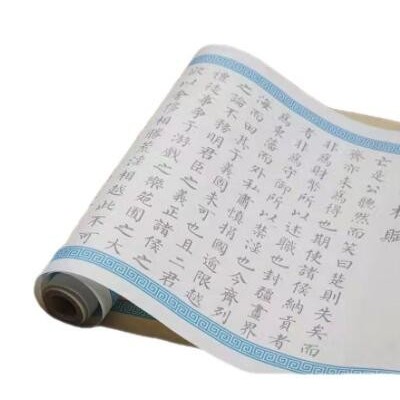 賦
亡是公聽然而笑曰楚則失矣而
齊亦未為得也期使諸侯納貢者
非為財幣所以述職也封疆畫界
者非為守禦所以禁淫也今齊列
為東藩而外私肅慎捐國逾限越
海而田其于義固未可也且二君
之論不務明君臣之義正諸侯之
禮徒事爭于游戲之樂苑囿之大
欲以奢侈相勝荒淫相越此不可